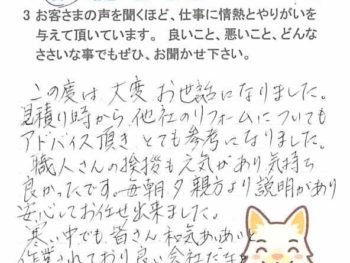 3 お客さまの声を聞くほど、仕事に情熱とやりがいを
与えて頂いています。 良いこと、悪いこと、どんな
ささいな事でもぜひ、お聞かせ下さい。
この度は大変お世話になりました。
見積り時から他社のリフォームについても
アドバイス頂きとても参考になりました。
職人さんの挨拶も元気があり気持ち
良かったです。毎朝夕親方より説明があり
安心してお任せ出来ました。
寒い中でも皆さん和気あいあいと
作業されており良い会社だな